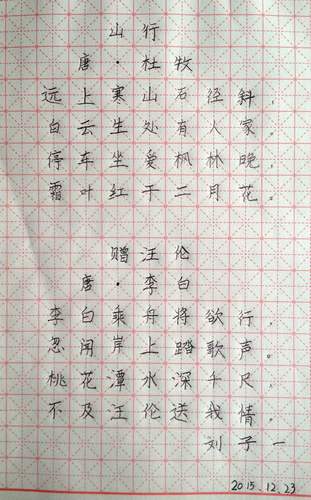 山行
唐·杜牧
远上寒山石径斜,
白云生处有人家。
停车坐爱枫林晚,
霜叶红于二月花。
赠汪伦
唐·李白
李白乘舟将欲行,
忽闻岸上踏歌声。
桃花潭水深千尺,
不及汪伦送我情。
刘子一
2015.12.23